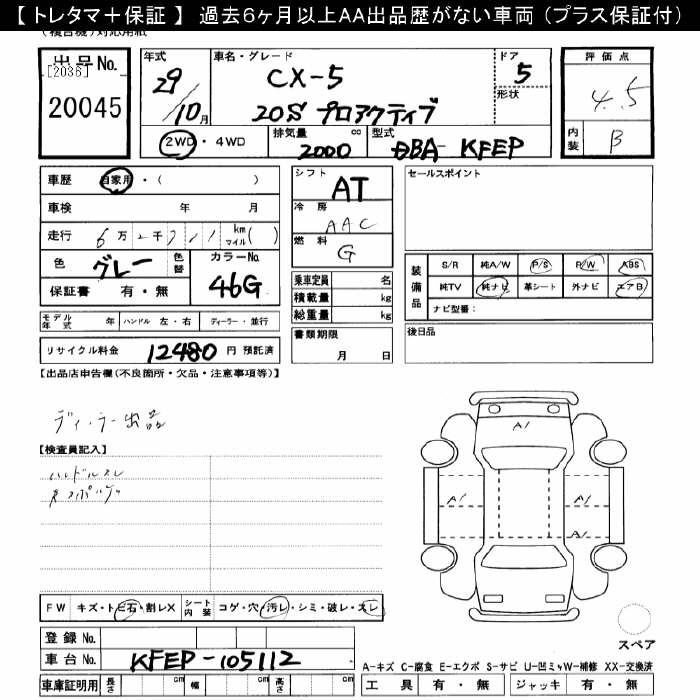 【 トレタマ＋保証 】 過去6ヶ月以上AA出品歴がない車両（プラス保証付）
（複合機）対応用紙
出品No.
[2036]
20045
年式
29/10月
車名・グレード
CX-5
20S プロアクティブ
ドア
5
形状
評価点
4.5
内装
B
2WD・4WD
排気量
2000
cc
型式
DBA-KFEP
車歴
自家用・（ ）
車検
年 月
走行
6万2千711
km
マイル( )
色
グレー
色替
カラーNo.
46G
保証書 有・無
シフト
AT
冷房
AAC
燃料
G
乗車定員 名
積載量 kg
総重量 kg
セールスポイント
装備品
S/R 純A/W P/S P/W ABS
純TV 純ナビ 革シート 外ナビ エアB
ナビ型番：
モデル年式 年 ハンドル 左・右 ディーラー・並行
書類期限
月 日
後日品
リサイクル料金 12480 円 預託済
【出品店申告欄(不良箇所・欠品・注意事項等)】
ディーラー出品
【検査員記入】
ハンドルスレ
A1
A1
A1
A1
FW キズ・トビ石・割レX シート内装 コゲ・穴・汚レ・シミ・破レ・スレ
登録No.
車台No. KFEP-105112
スペア
A-キズ C-腐食 E-エクボ S-サビ U-凹ミ W-補修 XX-交換済
車庫証明用 長さ cm 幅 cm 高さ cm
工具 有・無 ジャッキ 有・無